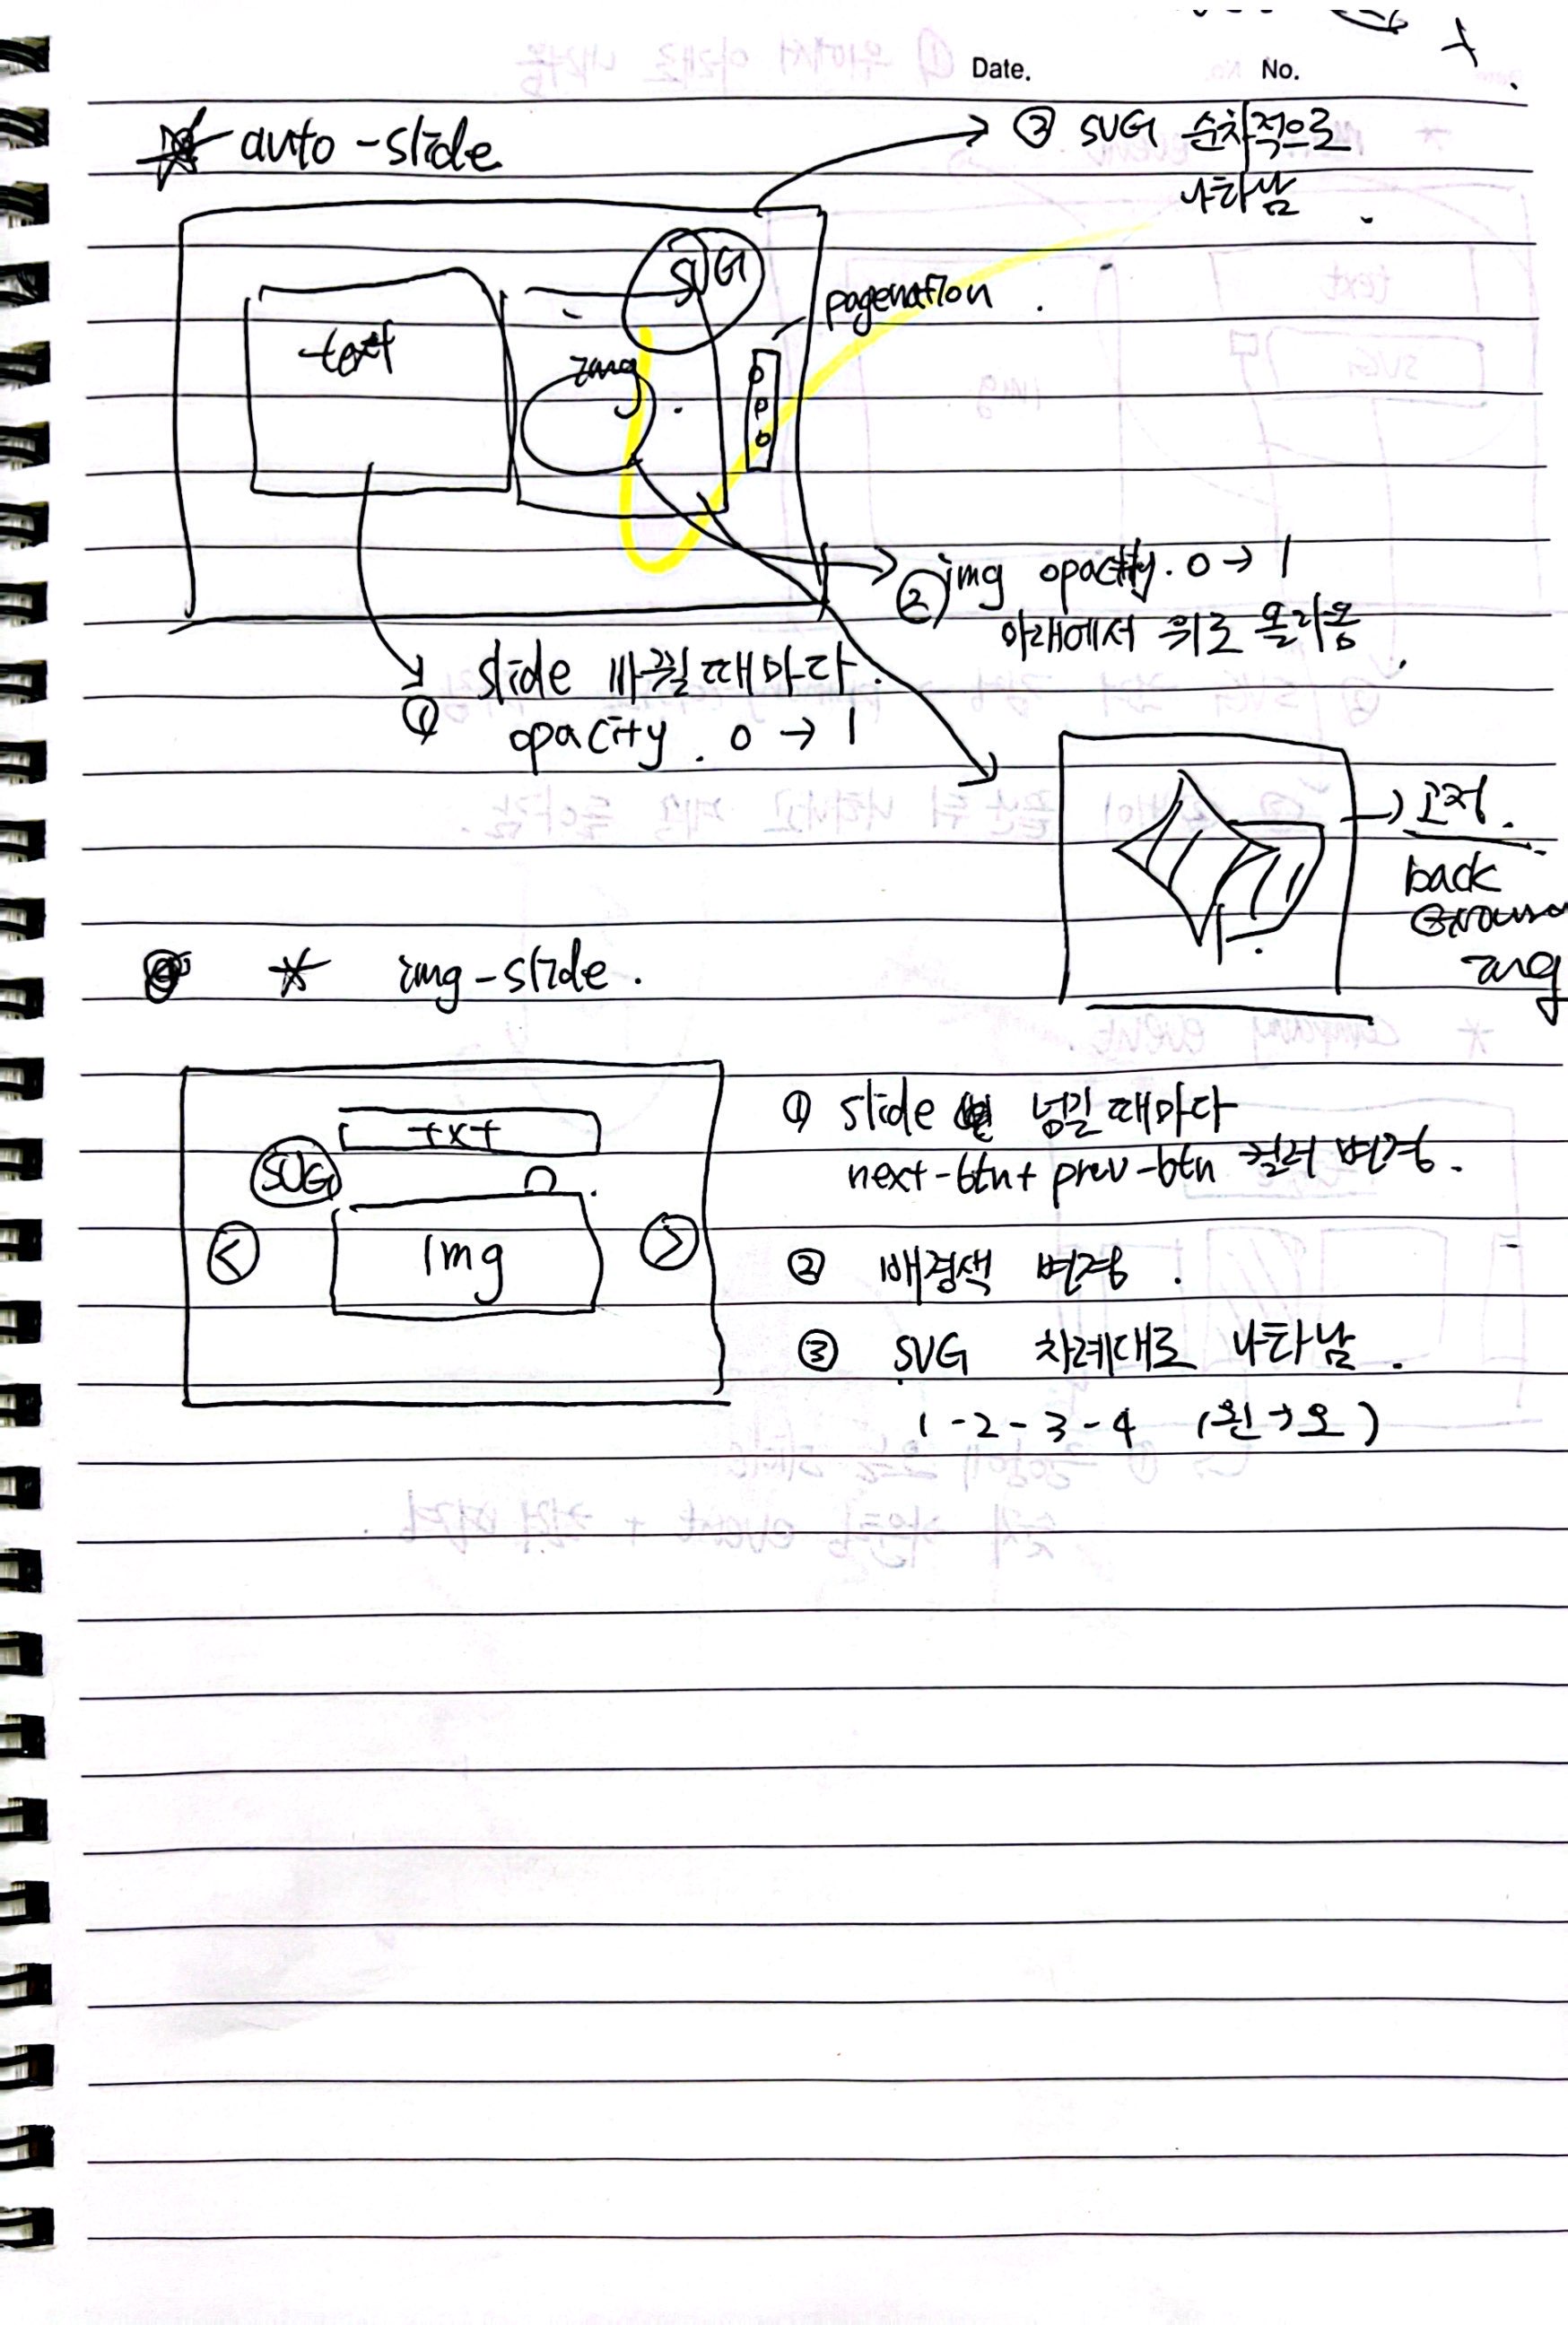 Date. No.
auto-slide
③ SVG 순차적으로
나타남.
SVG
pagenation.
text
img
② img opacity. 0 → 1
아래에서 위로 올라옴.
① slide 바뀔때마다.
opacity. 0 → 1
→ 고정.
back
img
* img-slide.
txt
SVG
< img >
① slide 넘길때마다
next-btn+ prev-btn 컬러 변경.
② 배경색 변경.
③ SVG 차례대로 나타남.
1-2-3-4 (왼→오)